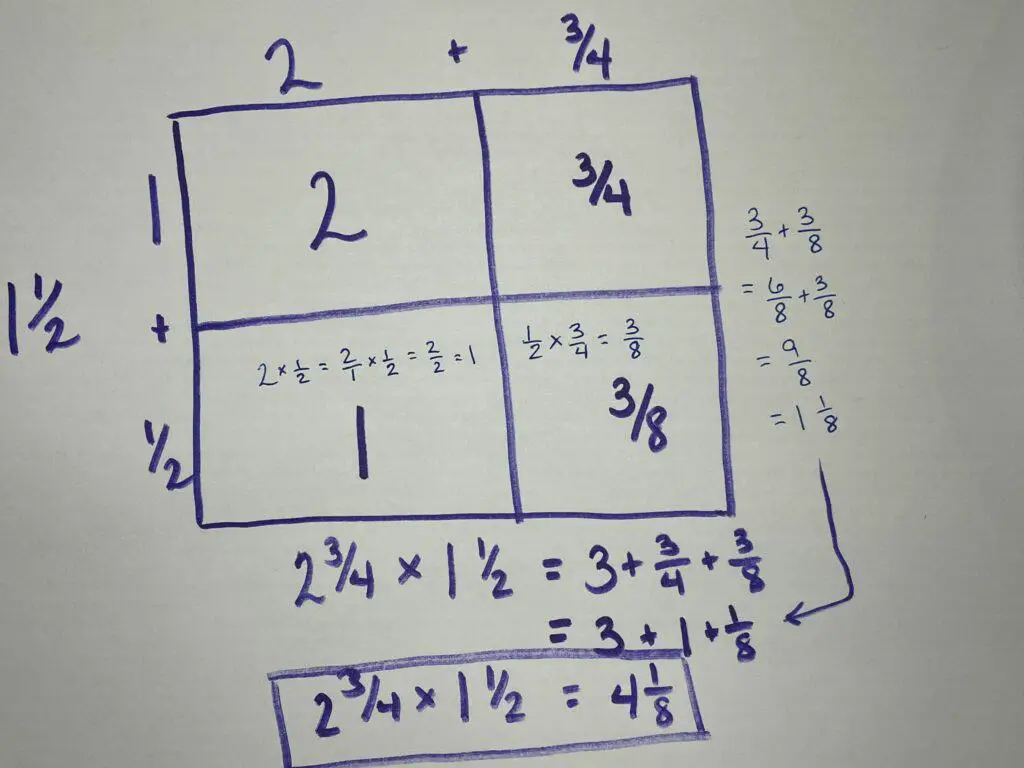 2 + 3/4
1 2 3/4
1 1/2
+
2 × 1/2 = 2/1 × 1/2 = 2/2 = 1
1/2 × 3/4 = 3/8
1/2 1 3/8
3/4 + 3/8
= 6/8 + 3/8
= 9/8
= 1 1/8
2 3/4 × 1 1/2 = 3 + 3/4 + 3/8
= 3 + 1 + 1/8
2 3/4 × 1 1/2 = 4 1/8